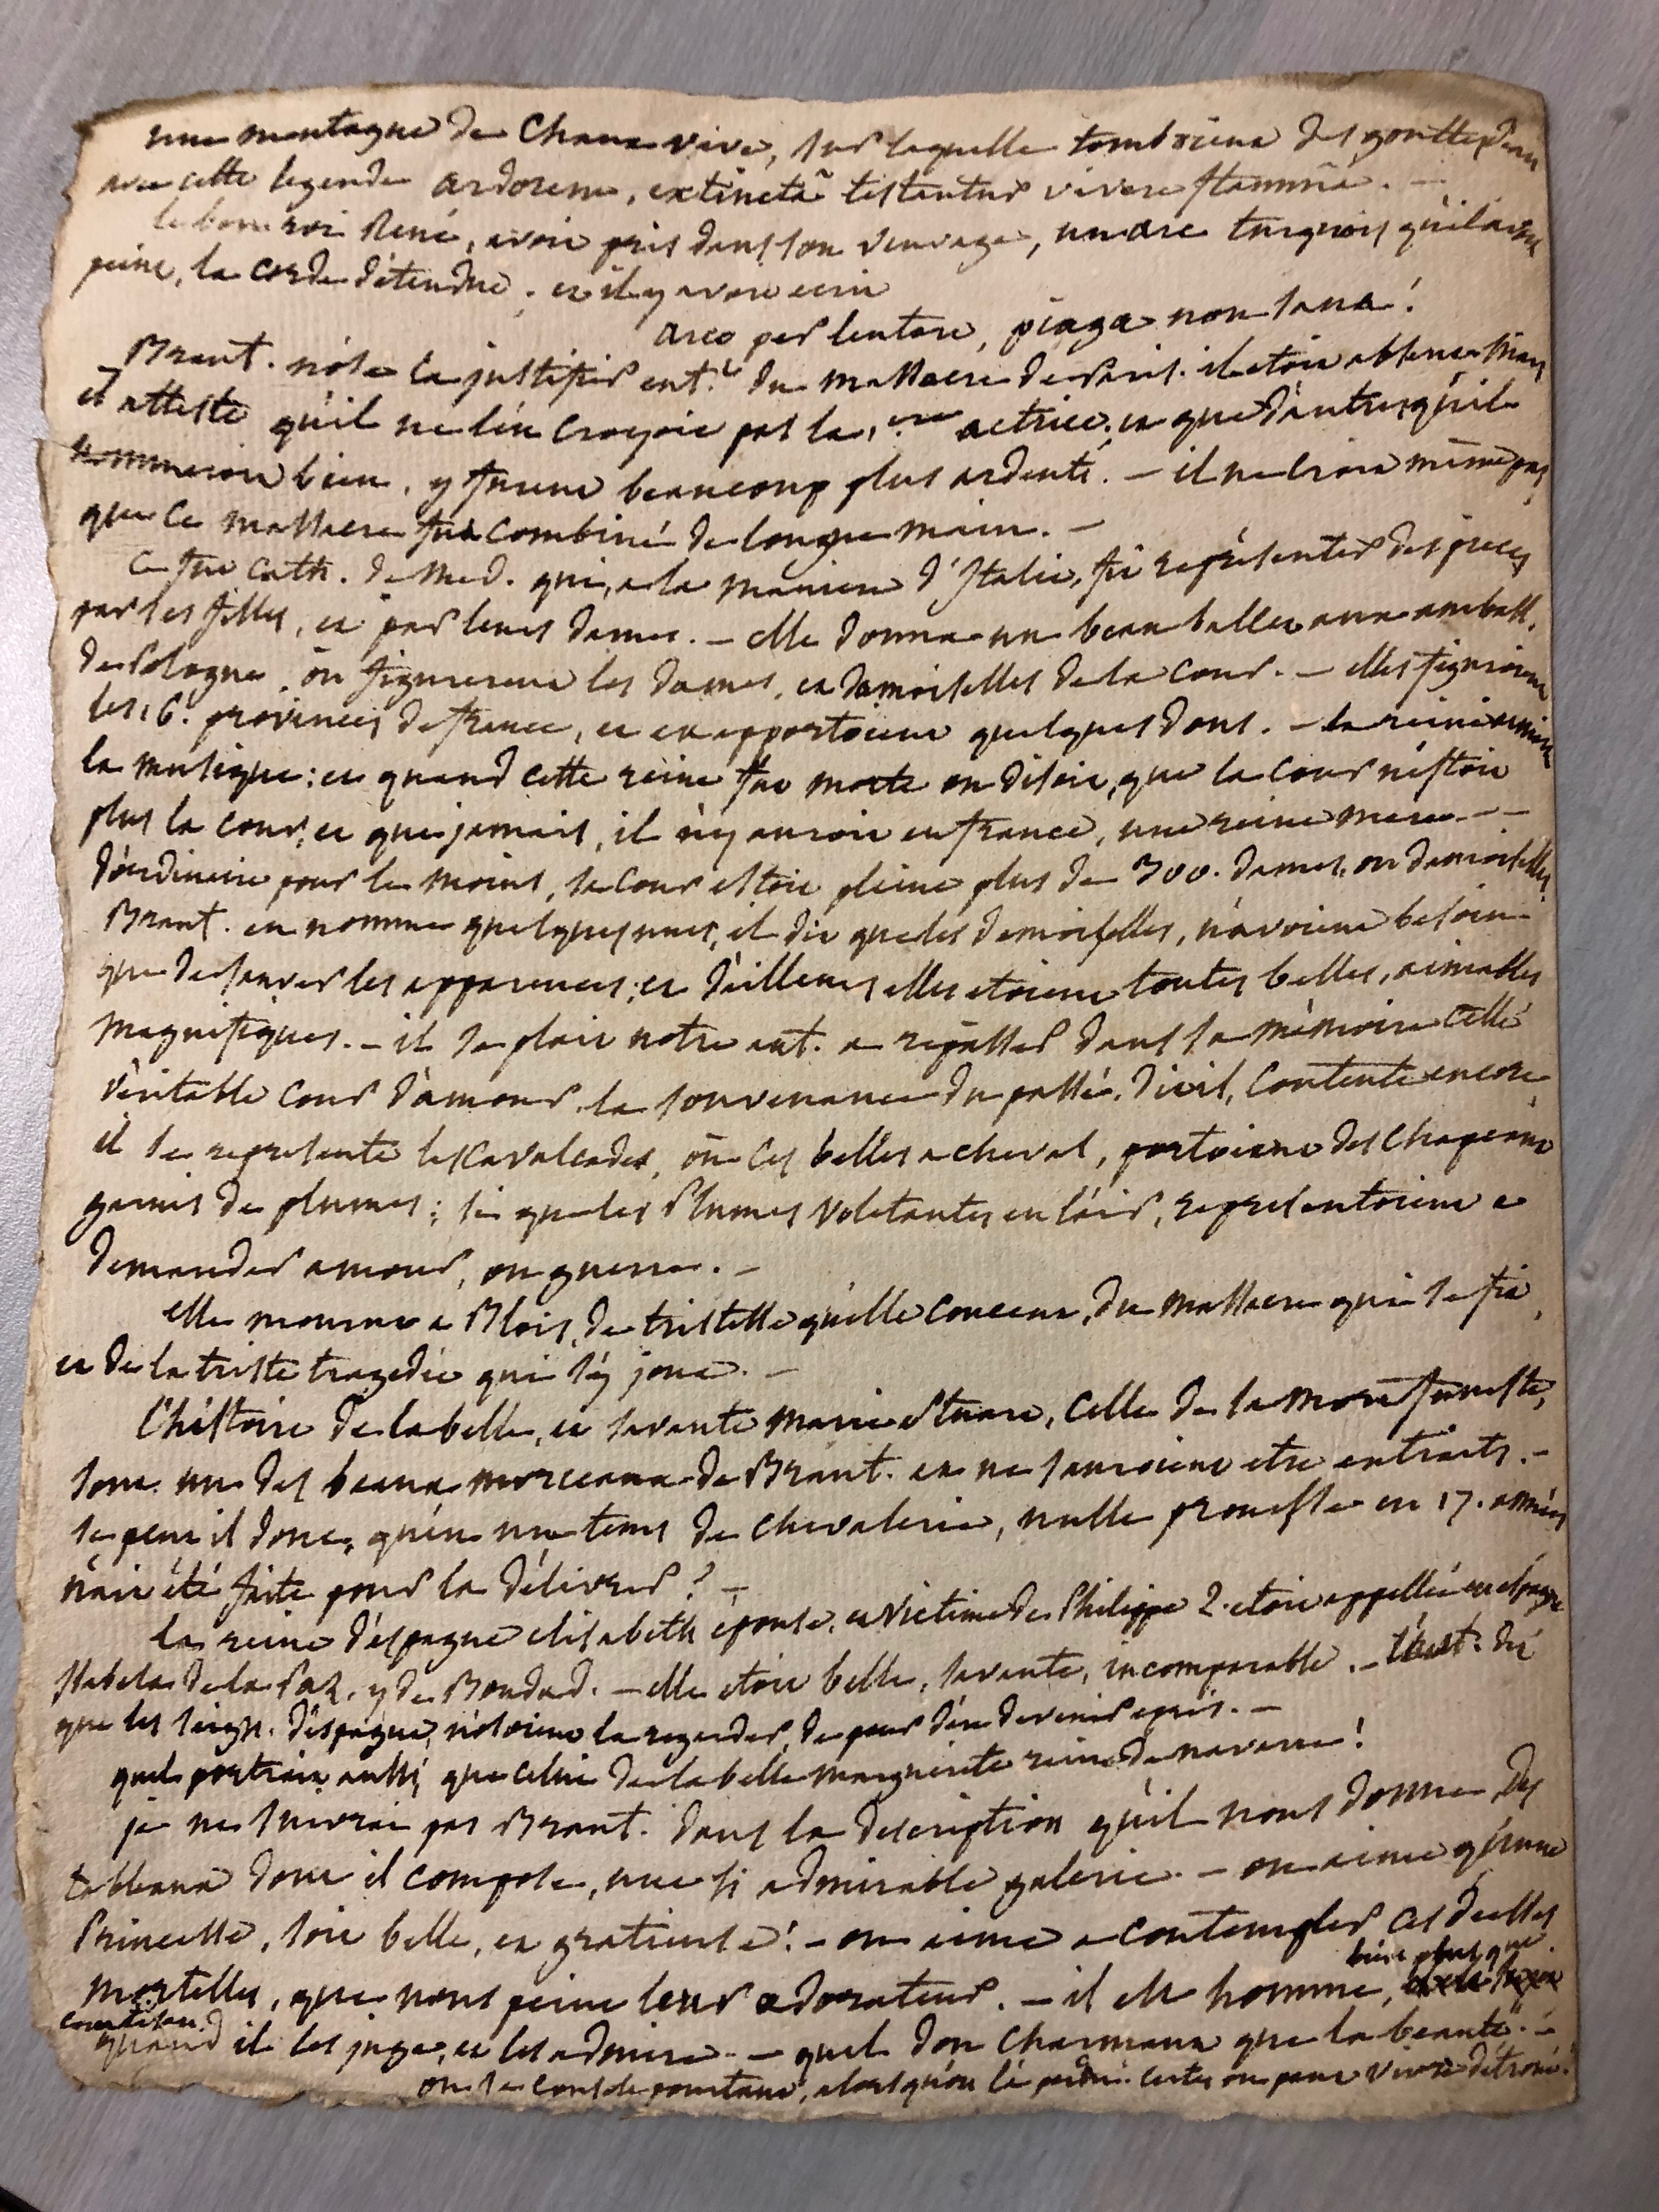 une montagne de chaux vive, sur laquelle tomboient des gouttes d'eau
avec cette legende ardorem, extinctâ testantur vivere flammâ. —
le bon roi René, avoit pris dans son veuvage, un arc turquois qu'il avoit
peint, la corde détendue, et il y avoit ecrit
arco per lentare, piaga non sana!
Brant. n'ose la justifier ent.t du massacre de Paris. il etoit absent. mais
il atteste qu'il ne l'en croyoit pas la 1.ere actrice, et que d'autres qu'il
nommeroit bien, y furent beaucoup plus ardents. — il ne croit même pas
que ce massacre fut combiné de longue main. —
Ce fut Cath. de Med. qui, a la maniere d'Italie, fit représenter des pieces
par ses filles, et par leurs dames. — elle donna un beau ballet aux ambass.
de Pologne, où figurerent les dames, et damoiselles de la cour. — elles figuroient
les 16. provinces de france, et en apportoient quelques dons. — la reine aimoit
la musique: et quand cette reine fut morte on disoit, que la cour n'estoit
plus la cour, et que jamais, il n'y auroit en france, une reine mere. — —
d'ordinaire pour le moins, sa cour estoit pleine plus de 300. dames, ou damoiselles.
Brant. en nomme quelques unes, il dit que les demoiselles, n'avoient besoin
que de sauver les apparences; et d'ailleurs elles etoient toutes belles, aimables
magnifiques. — il se plait notre aut. a repasser dans sa mémoire cette
véritable cour d'amour. la souvenance du passé, dit il, contente encore
il se represente les cavalcades, où ces belles a cheval, portoient des chapeaux
garnis de plumes; si que les plumes voletantes en l'air, representoient a
demander amour, ou guerre. —
elle mourut a Blois, de tristesse qu'elle conceut, du massacre qui se fit,
et de la triste tragedie qui s'y joua. —
L'histoire de la belle, et savante Marie Stuart, celle de sa mort funeste,
sont un des beaux morceaux de Brant. et ne sauroient etre extraits. —
se peut il donc, qu'en un tems de chevalerie, nulle prouesse en 17. années
n'ait été faite pour la délivrer? —
la reine d'espagne elisabeth épouse, et victime de Philippe 2. etoit appellée en espagne
Isabela de la Paz, y de Bondad. — elle etoit belle, savante, incomparable. — l'aut. dit
que les seign. d'espagne, n'osoient la regarder, de peur d'en devenir epris. —
quel portrait aussi, que celui de la belle marguerite reine de navarre!
je ne suivrai pas Brant. dans la description qu'il nous donne des
tableaux dont il compose, une si admirable galerie. — on aime qu'une
Princesse, soit belle, et gratieuse! — on aime a contempler ces déesses
mortelles, que nous peint leur adorateur. — il est homme, bien plus que
courtisan,
quand il les juge, et les admire. — quel don charmant que la beauté. —
on se console pourtant, alors qu'on l'a perdu. certes on peut vivre détroné!